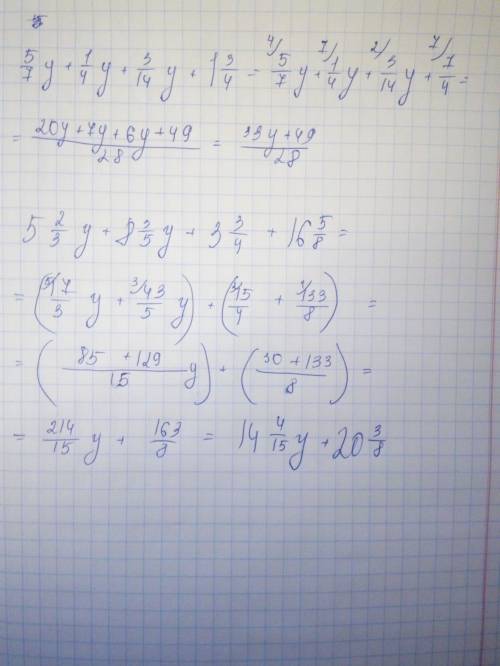 5/7 y + 1/4 y + 3/14 y + 1 3/4 = 4/ 5/7 y + 7/ 1/4 y + 2/ 3/14 y + 7/ 7/4 =
= (20y + 7y + 6y + 49)/28 = (33y + 49)/28
5 2/3 y + 8 3/5 y + 3 3/4 + 16 5/8 =
= (5/ 17/3 y + 3/ 43/5 y) + (2/ 15/4 + 1/ 133/8) =
= ((85 + 129)/15 y) + ((30 + 133)/8) =
= 214/15 y + 163/8 = 14 4/15 y + 20 3/8